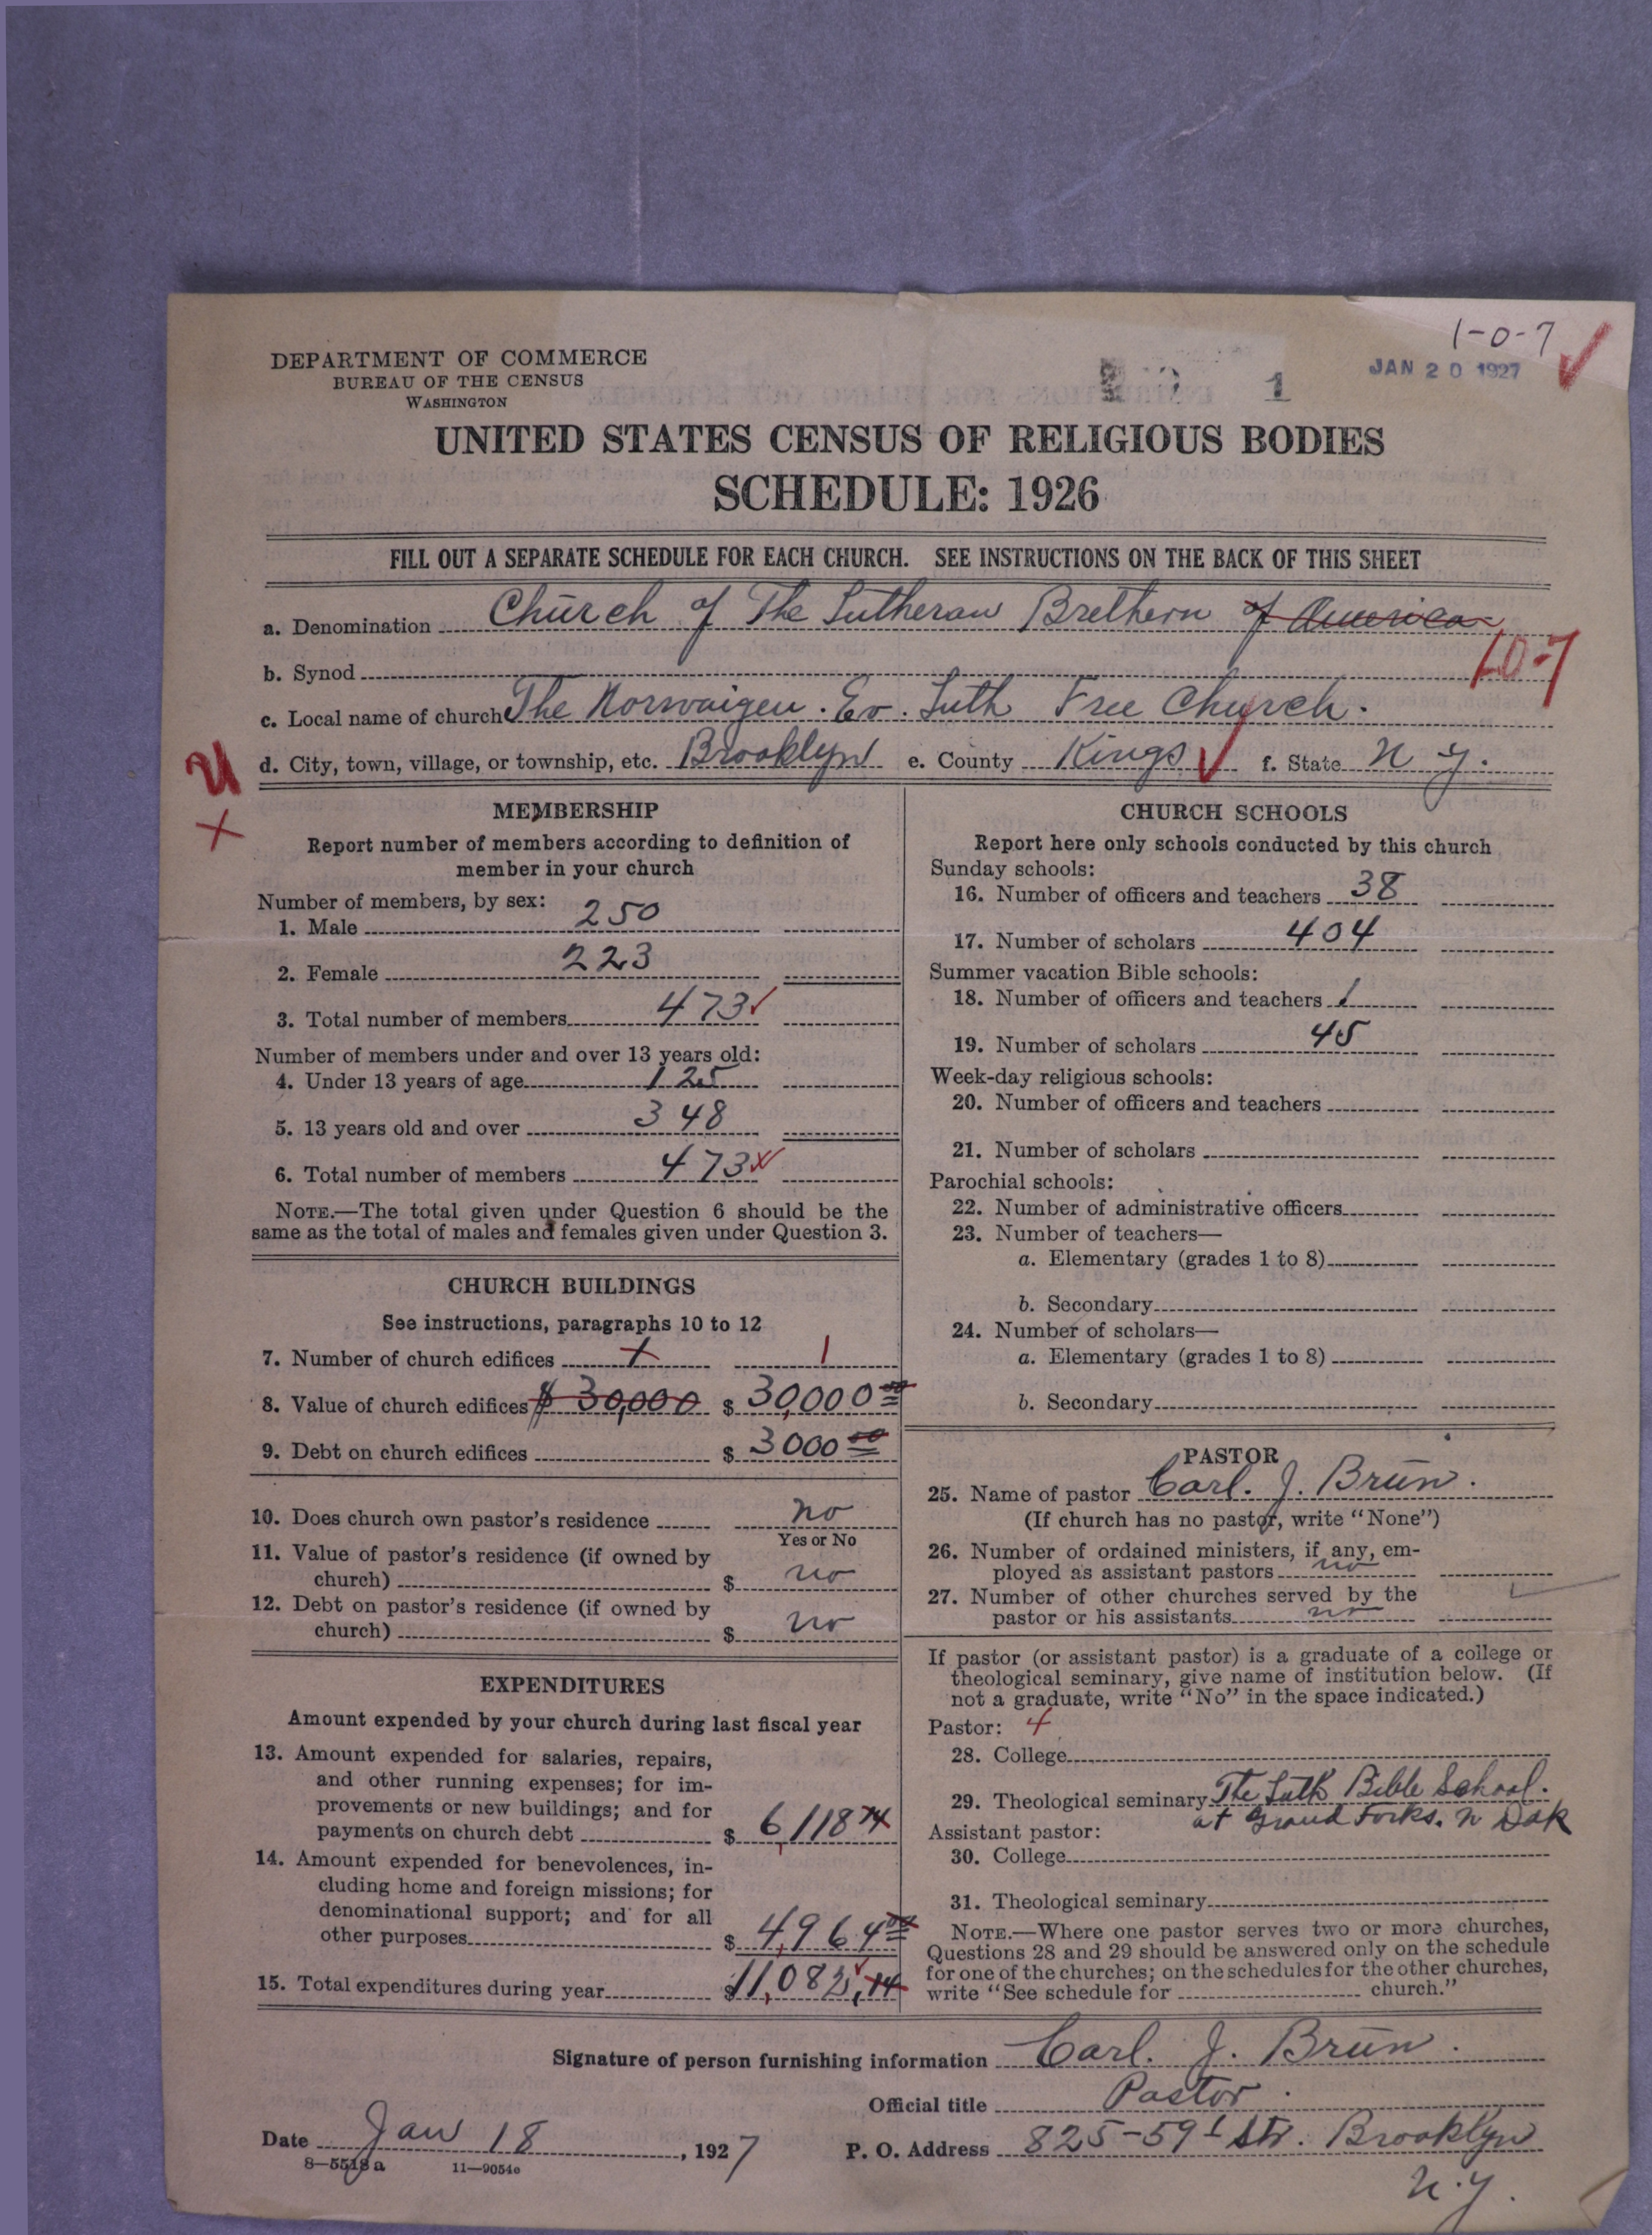 1-0-7
JAN 20 1927
DEPARTMENT OF COMMERCE
BUREAU OF THE CENSUS
WASHINGTON
1
UNITED STATES CENSUS OF RELIGIOUS BODIES
SCHEDULE: 1926
FILL OUT A SEPARATE SCHEDULE FOR EACH CHURCH. SEE INSTRUCTIONS ON THE BACK OF THIS SHEET
a. Denomination Church of The Lutheran Brethern of America
10-7
b. Synod
c. Local name of church The Norwaigen. Ev. Luth Free Church.
d. City, town, village, or township, etc. Brooklyn e. County Kings f. State N Y.
MEMBERSHIP
Report number of members according to definition of
member in your church
Number of members, by sex:
1. Male 250
2. Female 223
3. Total number of members 473
Number of members under and over 13 years old:
4. Under 13 years of age 125
5. 13 years old and over 348
6. Total number of members 473
NOTE.—The total given under Question 6 should be the
same as the total of males and females given under Question 3.
CHURCH BUILDINGS
See instructions, paragraphs 10 to 12
7. Number of church edifices 1
8. Value of church edifices $ 30,000 $ 30,000 00
9. Debt on church edifices $ 3000 00
10. Does church own pastor's residence no
Yes or No
11. Value of pastor's residence (if owned by
church) $ no
12. Debt on pastor's residence (if owned by
church) $ no
EXPENDITURES
Amount expended by your church during last fiscal year
13. Amount expended for salaries, repairs,
and other running expenses; for im-
provements or new buildings; and for
payments on church debt $ 6,118 74
14. Amount expended for benevolences, in-
cluding home and foreign missions; for
denominational support; and for all
other purposes $ 4,964 00
15. Total expenditures during year $ 11,082,74
CHURCH SCHOOLS
Report here only schools conducted by this church
Sunday schools:
16. Number of officers and teachers 38
17. Number of scholars 404
Summer vacation Bible schools:
18. Number of officers and teachers 1
19. Number of scholars 45
Week-day religious schools:
20. Number of officers and teachers
21. Number of scholars
Parochial schools:
22. Number of administrative officers
23. Number of teachers—
a. Elementary (grades 1 to 8)
b. Secondary
24. Number of scholars—
a. Elementary (grades 1 to 8)
b. Secondary
PASTOR
25. Name of pastor Carl. J. Brun.
(If church has no pastor, write "None")
26. Number of ordained ministers, if any, em-
ployed as assistant pastors no
27. Number of other churches served by the
pastor or his assistants no
If pastor (or assistant pastor) is a graduate of a college or
theological seminary, give name of institution below. (If
not a graduate, write "No" in the space indicated.)
Pastor: 4
28. College
29. Theological seminary The Luth Bible School.
at Grand Forks. N Dak
Assistant pastor:
30. College
31. Theological seminary
NOTE.—Where one pastor serves two or more churches,
Questions 28 and 29 should be answered only on the schedule
for one of the churches; on the schedules for the other churches,
write "See schedule for church."
Signature of person furnishing information Carl. J. Brun.
Official title Pastor.
Date Jan 18, 1927 P. O. Address 825-59t Str. Brooklyn
N.Y.
8—5518 a 11—9054e